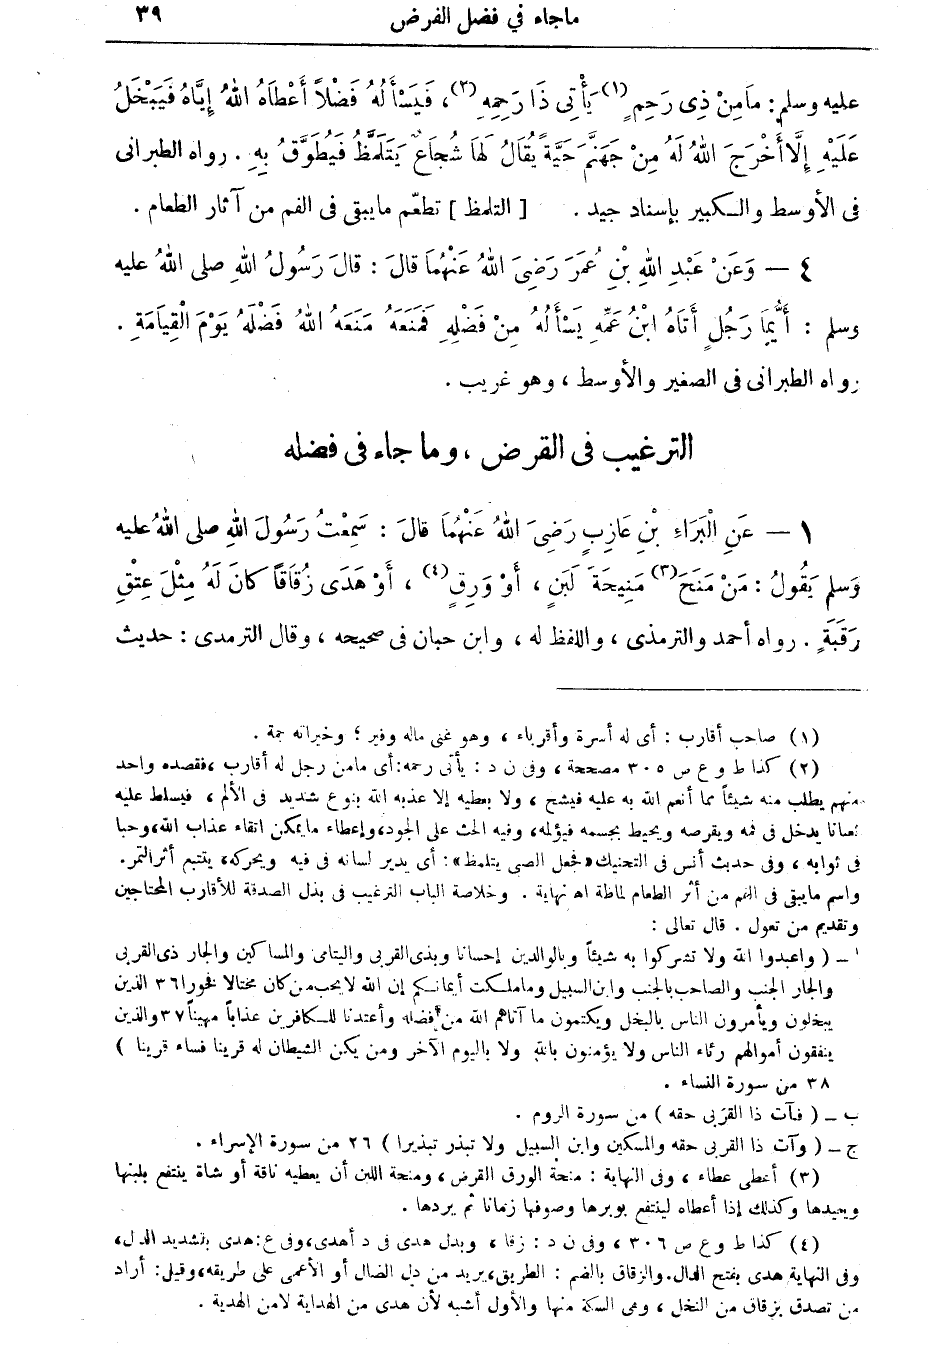 ماجاء في فضل القرض ٣٩
عليه وسلم: مَا مِنْ ذِى رَحِمٍ (١) يَأْتِى ذَا رَحِمِهِ (٢)، فَيَسْأَلُهُ فَضْلاً أَعْطَاهُ اللهُ إِيَّاهُ فَيَبْخَلُ
عَلَيْهِ إِلَّا أَخْرَجَ اللهُ لَهُ مِنْ جَهَنَّمَ حَيَّةً يُقَالُ لَهَا شُجَاعٌ يَتَلَمَّظُ فَيُطَوَّقُ بِهِ . رواه الطبرانى
فى الأوسط والكبير بإسناد جيد . [ التلمظ ] تطعّم مايبقى فى الفم من آثار الطعام .
٤ — وَعَنْ عَبْدِ اللهِ بْنِ عُمَرَ رَضِىَ اللهُ عَنْهُمَا قالَ : قالَ رَسُولُ اللهِ صلى اللهُ عليه
وسلم : أَيُّمَا رَجُلٍ أَتَاهُ ابْنُ عَمِّهِ يَسْأَلُهُ مِنْ فَضْلِهِ فَمَنَعَهُ مَنَعَهُ اللهُ فَضْلَهُ يَوْمَ الْقِيَامَةِ .
رواه الطبرانى فى الصغير والأوسط ، وهو غريب .
الترغيب فى القرض ، وما جاء فى فضله
١ — عَنِ الْبَرَاءِ بْنِ عَازِبٍ رَضِىَ اللهُ عَنْهُمَا قالَ : سَمِعْتُ رَسُولَ اللهِ صلى اللهُ عليه
وَسلم يَقُولُ : مَنْ مَنَحَ (٣) مَنِيحَةَ لَبَنٍ ، أَوْ وَرِقٍ (٤) ، أَوْ هَدَى زُقَاقًا كانَ لَهُ مِثْلَ عِتْقِ
رَقَبَةٍ . رواه أحمد والترمذى ، واللفظ له ، وابن حبان فى صحيحه ، وقال الترمدى : حديث
(١) صاحب أقارب : أى له أسرة وأقرباء ، وهو غنى ماله وفير ؛ وخيراته جمة .
(٢) كذا ط و ع ص ٣٠٥ مصححة ، وفى ن د : يأتى رحمه: أى مامن رجل له أقارب ، فقصده واحد
منهم يطلب منه شيئاً مما أنعم الله به عليه فيشح ، ولا يعطيه إلا عذبه الله بنوع شديد فى الألم ، فيسلط عليه
ثعبانا يدخل فى فمه ويقرصه ويحيط بجسمه فيؤلمه، وفيه الحث على الجود، وإعطاء مايمكن اتقاء عذاب الله، وحبا
فى ثوابه ، وفى حديث أنس فى التحنيك «فجعل الصبى يتلمظ» : أى يدير لسانه فى فيه ويحركه، يتتبع أثر التمر.
واسم مايبقى فى الفم من أثر الطعام لماظة اه نهاية . وخلاصة الباب الترغيب فى بذل الصدقة للأقارب المحتاجين
وتقديم من تعول . قال تعالى :
ا — ( واعبدوا الله ولا تشركوا به شيئاً وبالوالدين إحسانا وبذى القربى واليتامى والمساكين والجار ذى القربى
والجار الجنب والصاحب بالجنب وابن السبيل وماملكت أيمانكم إن الله لايحب من كان مختالا فخورا ٣٦ الذين
يبخلون ويأمرون الناس بالبخل ويكتمون ما آتاهم الله من فضله وأعتدنا للكافرين عذاباً مهيناً ٣٧ والذين
ينفقون أموالهم رئاء الناس ولا يؤمنون بالله ولا باليوم الآخر ومن يكن الشيطان له قرينا فساء قرينا )
٣٨ من سورة النساء .
ب — ( فآت ذا القربى حقه ) من سورة الروم .
ج — ( وآت ذا القربى حقه والمسكين وابن السبيل ولا تبذر تبذيرا ) ٢٦ من سورة الإسراء .
(٣) أعطى عطاء ، وفى النهاية : منحة الورق القرض ، ومنحة اللبن أن يعطيه ناقة أو شاة ينتفع بلبنها
ويعيدها وكذلك إذا أعطاه لينتفع بوبرها وصوفها زمانا ثم يردها .
(٤) كذا ط و ع ص ٣٠٦ ، وفى ن د : زقا ، وبدل هدى فى د أهدى، وفى ع: هدى بتشديد الدال،
وفى النهاية هدى بفتح الدال. والزقاق بالضم : الطريق، يريد من دل الضال أو الأعمى على طريقه، وقيل: أراد
من تصدق بزقاق من النخل ، وهى السكة منها والأول أشبه لأن هدى من الهداية لامن الهدية .